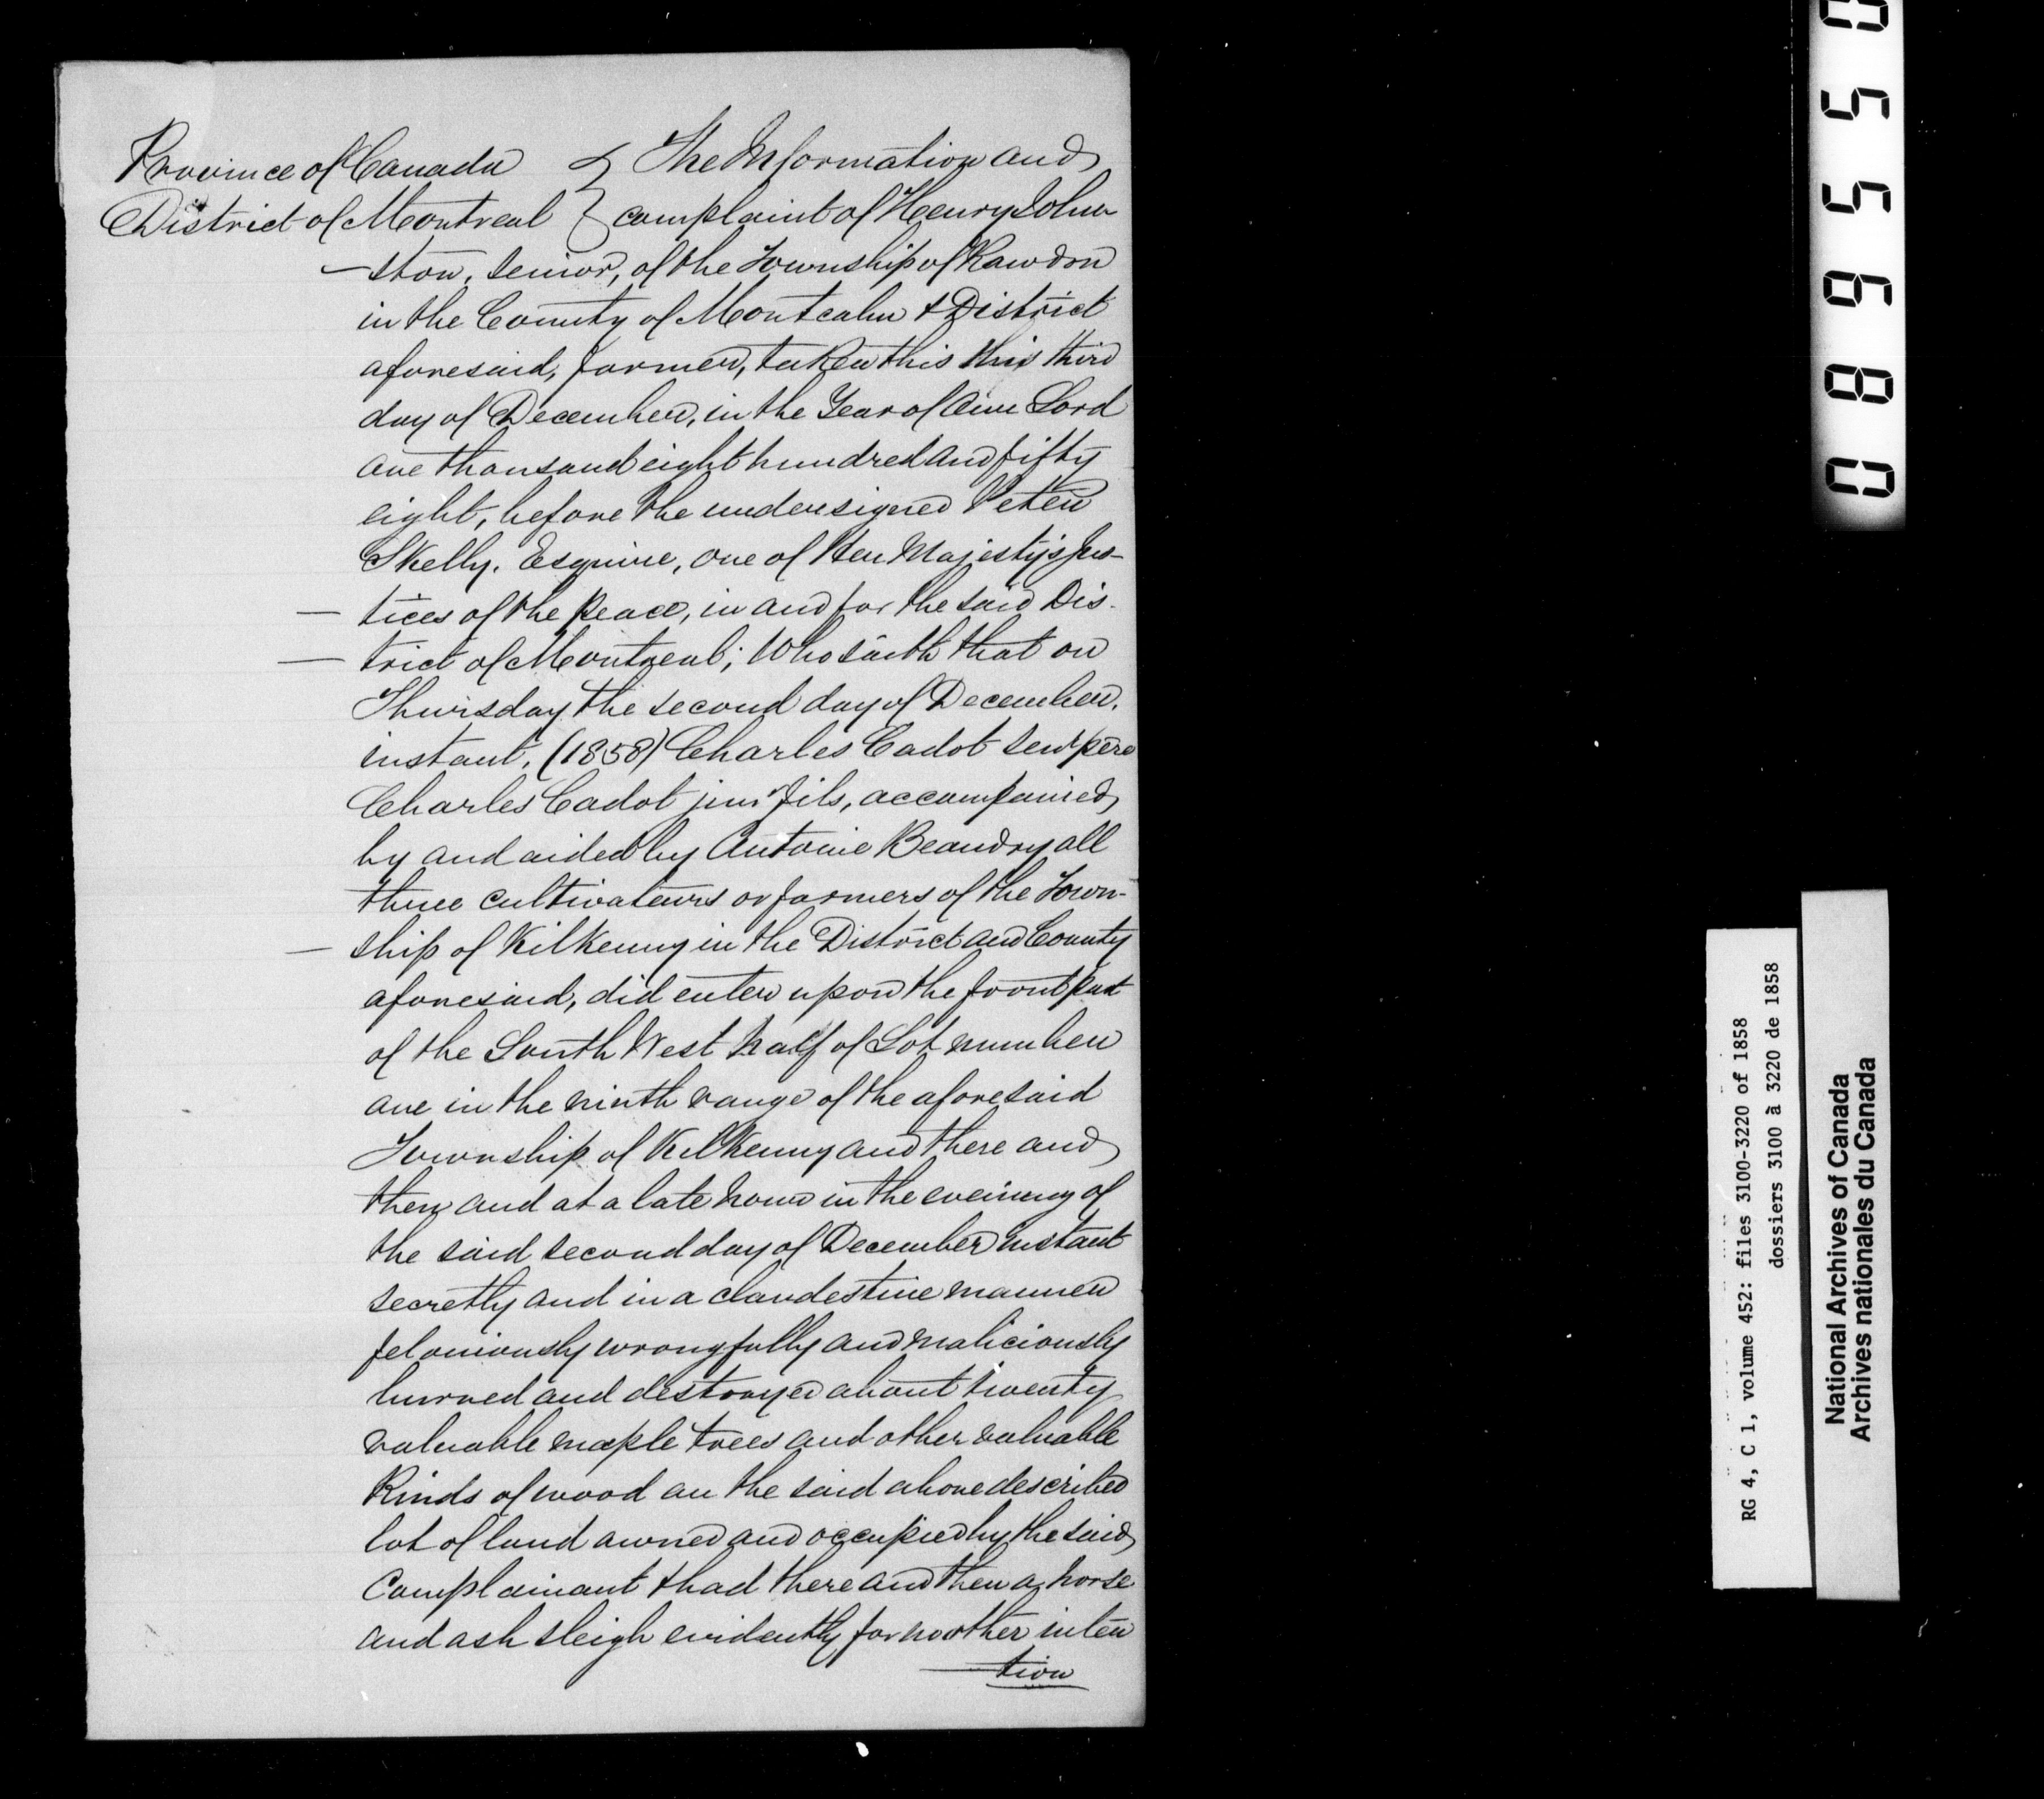 Province of Canada } The Information and
District of Montreal } complaint of Henry John
-ston, senior, of the Township of Rawdon
in the County of Montcalm & District
aforesaid, farmer, taken this this third
day of December, in the Year of Our Lord
one thousand eight hundred and fifty
eight, before the undersigned Peter
Skelly, Esquire, one of Her Majesty's Jus-
- tices of the Peace, in and for the said Dis-
- trict of Montreal; Who saith that on
Thursday the second day of December,
instant, (1858) Charles Cadot senr père
Charles Cadot junr fils, accompanied
by and aided by Antoine Beaudry all
three cultivateurs or farmers of the Town-
- ship of Kilkenny in the District and County
aforesaid, did enter upon the front part
of the South West half of Lot number
one in the ninth range of the aforesaid
Township of Kilkenny and there and
then and at a late hour in the evening of
the said second day of December instant
secretly and in a clandestine manner
feloniously wrongfully and maliciously
burned and destroyed about twenty
valuable maple trees and other valuable
kinds of wood on the said above described
lot of land owned and occupied by the said
Complainant & had there and then a horse
and ash sleigh evidently for no other inten
-tion
085965550
RG 4, C 1, volume 452: files 3100-3220 of 1858
dossiers 3100 à 3220 de 1858
National Archives of Canada
Archives nationales du Canada